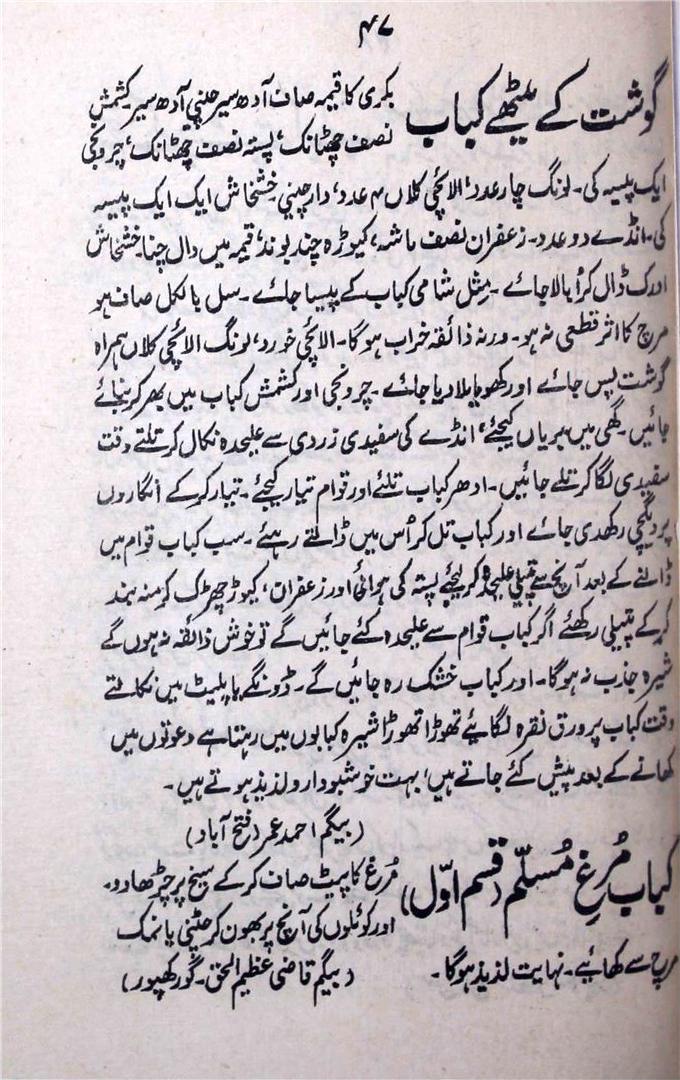 ۴۷
گوشت کے میٹھے کباب
بکری کا قیمہ صاف آدھ سیر چینی آدھ سیر کشمش
نصف چھٹانک، پستہ نصف چھٹانک، چرونجی
ایک پیسہ کی۔ لونگ چار عدد، الائچی کلاں ۳ عدد، دارچینی۔ خشخاش ایک ایک پیسہ
کی۔ انڈے دو عدد۔ زعفران نصف ماشہ، کیوڑہ چند بوند، قیمہ میں دال چنا۔ خشخاش
ادرک ڈال کر اُبالا جائے۔ مثل شامی کباب کے پیسا جائے۔ سل بالکل صاف ہو
مرچ کا اثر قطعی نہ ہو۔ ورنہ ذائقہ خراب ہوگا۔ الائچی خورد، لونگ الائچی کلاں ہمراہ
گوشت پس جائے اور کھویا ملا دیا جائے۔ چرونجی اور کشمش کباب میں بھر کر بنائے
جائیں۔ گھی میں بریاں کیجئے، انڈے کی سفیدی زردی سے علیحدہ نکال کر تلتے وقت
سفیدی لگا کر تلے جائیں۔ ادھر کباب تلئے اور قوام تیار کیجئے۔ تیار کر کے انگاروں
پر دیگچی رکھدی جائے اور کباب تل کر اُس میں ڈالتے رہئے۔ سب کباب قوام میں
ڈالنے کے بعد آنچ سے پتیلی علیحدہ کر لیجئے پستہ کی ہوائی اور زعفران، کیوڑ چھڑک کر منہ بند
کر کے پتیلی رکھئے اگر کباب قوام سے علیحدہ کئے جائیں گے تو خوش ذائقہ نہ ہوں گے
شیرہ جذب نہ ہوگا۔ اور کباب خشک رہ جائیں گے۔ ڈونگے یا پلیٹ میں نکالتے
وقت کباب پر ورق نقرہ لگائیے تھوڑا تھوڑا شیرہ کبابوں میں رہتا ہے دعوتوں میں
کھانے کے بعد پیش کئے جاتے ہیں، بہت خوشبودار و لذیذ ہوتے ہیں۔
(بیگم احمد عمر (فتح آباد)
کباب مُرغ مُسلّم (قسم اوّل)
مُرغ کا پیٹ صاف کر کے سیخ پر چڑھا دو۔
اور کوئلوں کی آنچ پر بھون کر چٹنی یا نمک
مرچ سے کھائیے۔ نہایت لذیذ ہوگا۔
(بیگم قاضی عظیم الحق۔ گورکھپور)